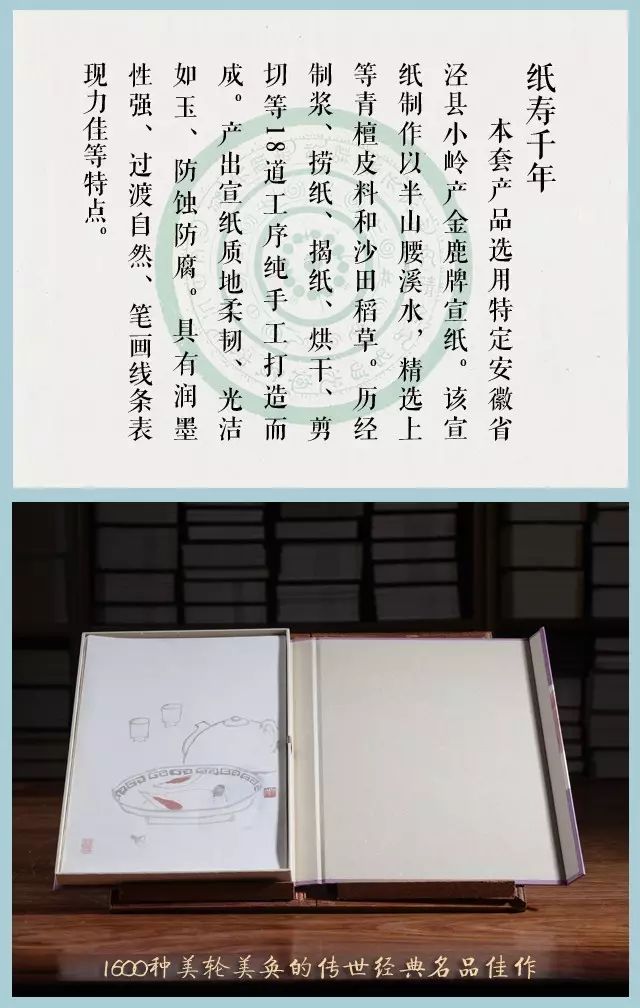 纸寿千年
本套产品选用特定安徽省
泾县小岭产金鹿牌宣纸。该宣
纸制作以半山腰溪水，精选上
等青檀皮料和沙田稻草。历经
制浆、捞纸、揭纸、烘干、剪
切等18道工序纯手工打造而
成。产出宣纸质地柔韧、光洁
如玉、防蚀防腐。具有润墨
性强、过渡自然、笔画线条表
现力佳等特点。
1600种美轮美奂的传世经典名品佳作